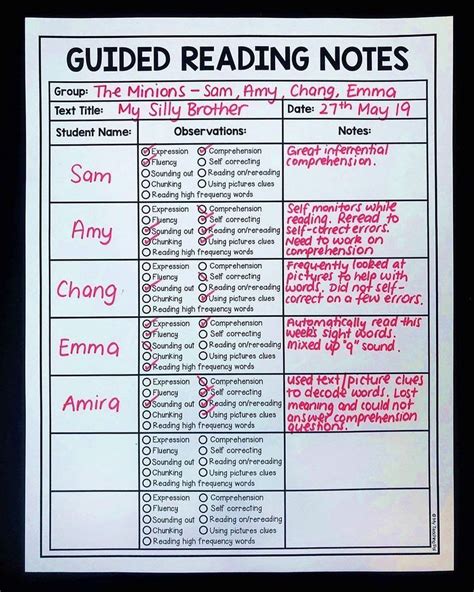 GUIDED READING NOTES
Group: The Minions - Sam, Amy, Chang, Emma
Text Title: My Silly Brother Date: 27th May 19
Student Name: Observations: Notes:
Sam
Expression Comprehension
Fluency Self correcting
Sounding out Reading on/rereading
Chunking Using pictures clues
Reading high frequency words
Great inferential
comprehension.
Amy
Expression Comprehension
Fluency Self correcting
Sounding out Reading on/rereading
Chunking Using pictures clues
Reading high frequency words
Self monitors while
reading. Reread to
self-correct errors.
Need to work on
comprehension
Chang
Expression Comprehension
Fluency Self correcting
Sounding out Reading on/rereading
Chunking Using pictures clues
Reading high frequency words
Frequently looked at
pictures to help with
words. Did not self-
correct on a few errors.
Emma
Expression Comprehension
Fluency Self correcting
Sounding out Reading on/rereading
Chunking Using pictures clues
Reading high frequency words
Automatically read this
weeks sight words.
Mixed up "q" sound.
Amira
Expression Comprehension
Fluency Self correcting
Sounding out Reading on/rereading
Chunking Using pictures clues
Reading high frequency words
used text/picture clues
to decode words. Lost
meaning and could not
answer comprehension
questions.
Expression Comprehension
Fluency Self correcting
Sounding out Reading on/rereading
Chunking Using pictures clues
Reading high frequency words
Expression Comprehension
Fluency Self correcting
Sounding out Reading on/rereading
Chunking Using pictures clues
Reading high frequency words